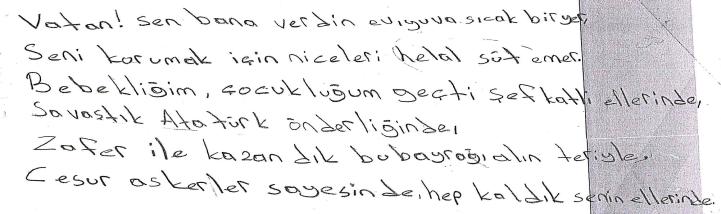 Vatan! Sen bana verdin eviyuva sıcak bir yer,
Seni korumak için niceleri helal süt emer.
Bebekliğim, çocukluğum geçti şefkatli ellerinde,
Savaştık Atatürk önderliğinde,
Zafer ile kazandık bu bayrağı, alın teriyle.
Cesur askerler sayesinde, hep kaldık senin ellerinde.